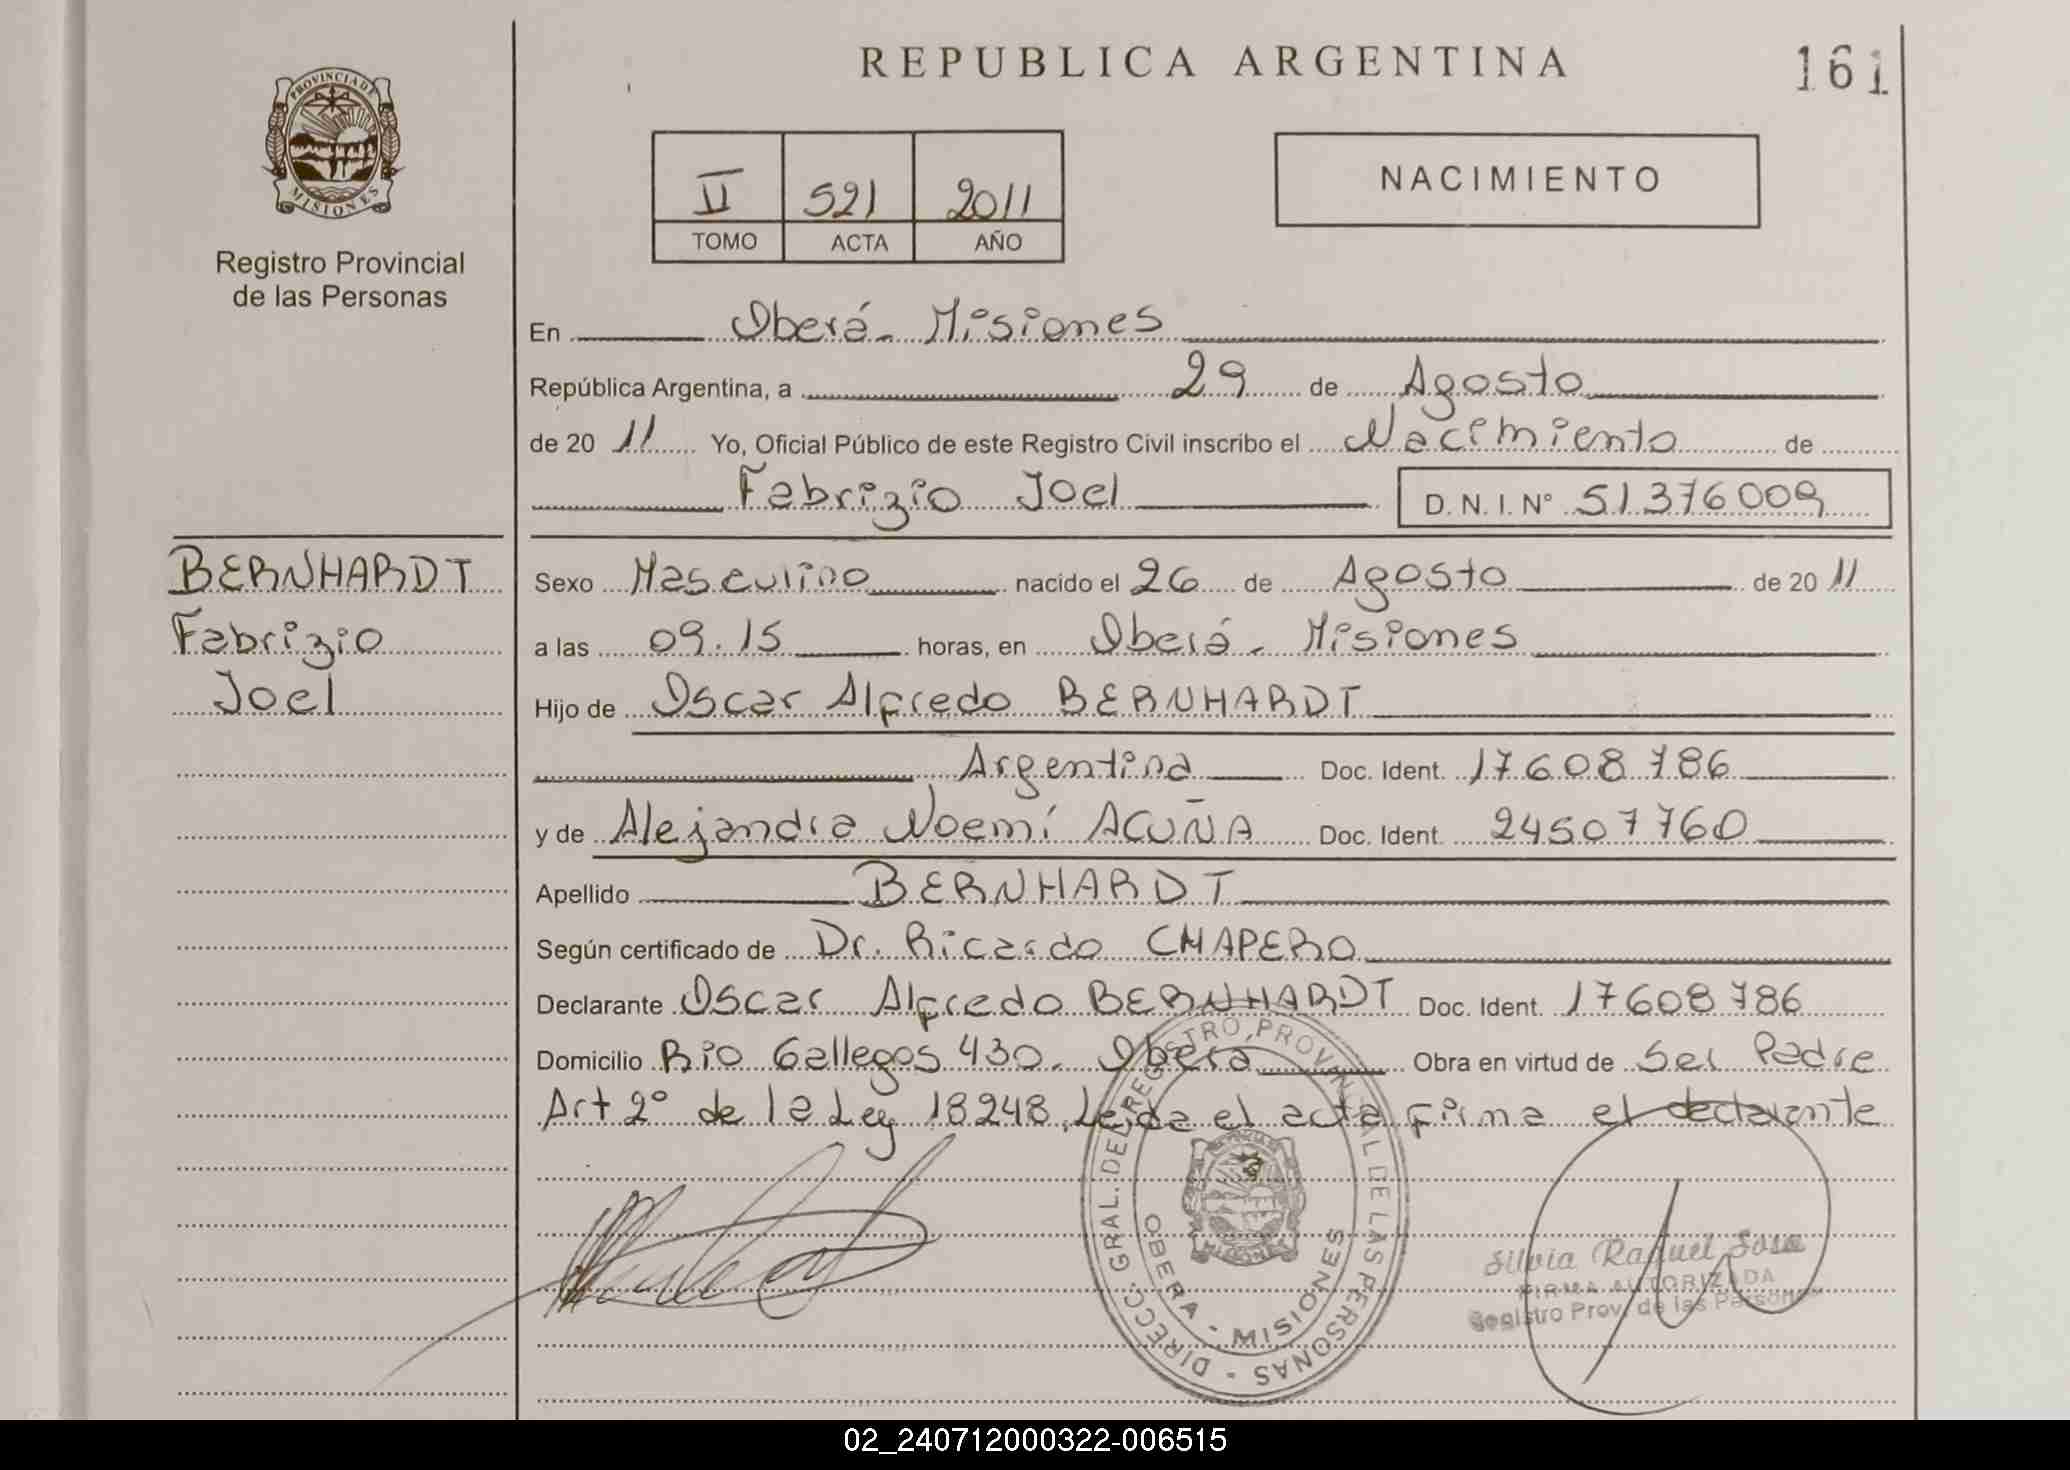 REPUBLICA ARGENTINA
161
PROVINCIA DE
MISIONES
Registro Provincial
de las Personas
II 521 2011
TOMO ACTA AÑO
NACIMIENTO
En Oberá - Misiones
República Argentina, a 29 de Agosto
de 2011 Yo, Oficial Público de este Registro Civil inscribo el Nacimiento de
Fabrizio Joel D. N. I. N° 51376009
BERNHARDT
Fabrizio
Joel
Sexo Masculino nacido el 26 de Agosto de 2011
a las 09.15 horas, en Oberá - Misiones
Hijo de Oscar Alfredo BERNHARDT
Argentina Doc. Ident. 17608786
y de Alejandra Noemí ACUÑA Doc. Ident. 24507760
Apellido BERNHARDT
Según certificado de Dr. Ricardo CHAPERO
Declarante Oscar Alfredo BERNHARDT Doc. Ident. 17608786
Domicilio Rio Gallegos 430. Obera Obra en virtud de Ser Padre
Art 2° de la Ley 18248. Leida el acta firma el declarante
DIRECC. GRAL. DEL REGISTRO PROVINCIAL DE LAS PERSONAS -
OBERA - MISIONES
Silvia Raquel Sosa
FIRMA AUTORIZADA
Registro Prov. de las Personas
02_240712000322-006515